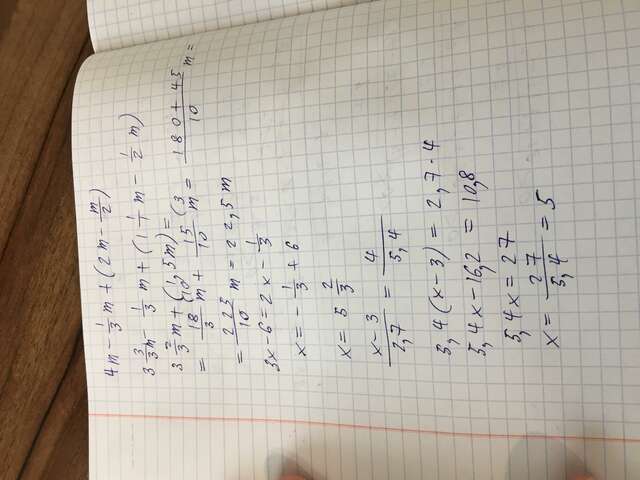 4m - 1/3 m + (2m - m/2)
3 3/3 m - 1/3 m + (1 1/1 m - 1/2 m)
3 2/3 m + (1,5m) = (3
= 18/3 m + 15/10 m = (180 + 45)/10 m =
= 225/10 m = 22,5m
3x - 6 = 2x - 1/3
x = - 1/3 + 6
x = 5 2/3
(x - 3)/2,7 = 4/5,4
5,4(x - 3) = 2,7 · 4
5,4x - 16,2 = 10,8
5,4x = 27
x = 27/5,4 = 5